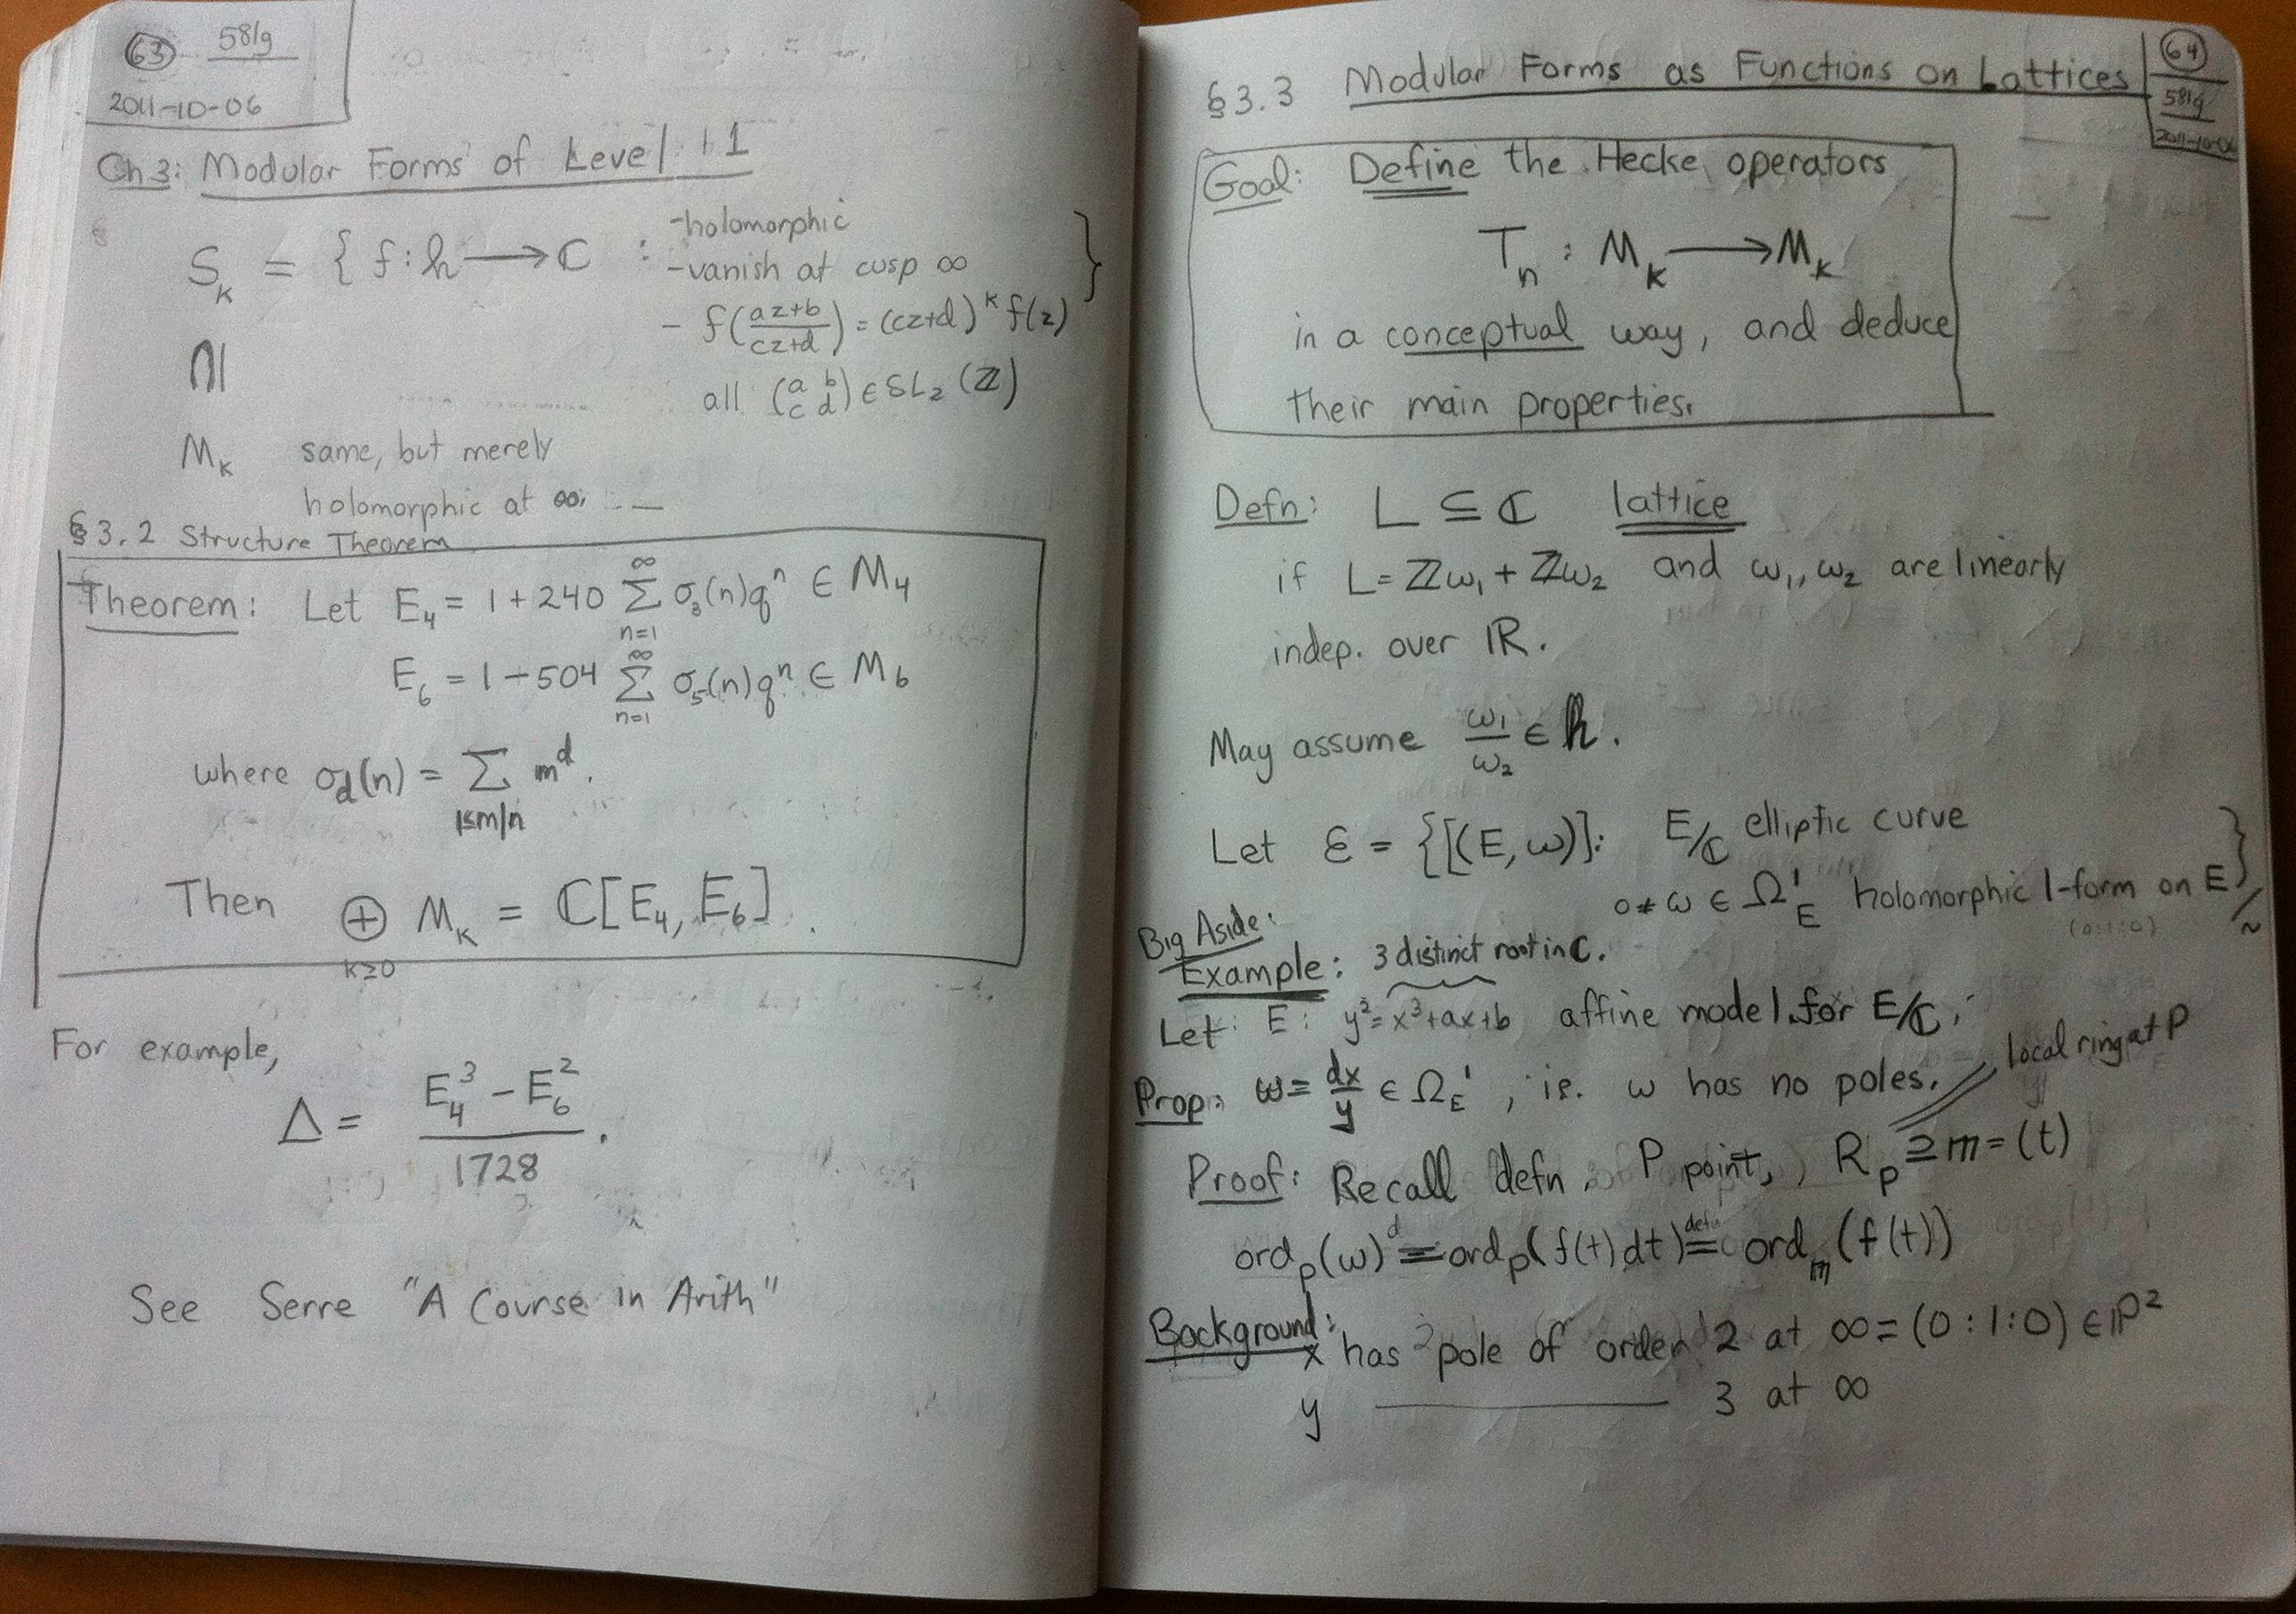 63 581g
2011-10-06
Ch 3: Modular Forms of Level 1
S_k = { f: h ⟶ ℂ : -holomorphic
-vanish at cusp ∞
- f((az+b)/(cz+d)) = (cz+d)^k f(z)
all (a b; c d) ∈ SL_2(ℤ) }
∩|
M_k same, but merely
holomorphic at ∞.
§3.2 Structure Theorem
Theorem: Let E_4 = 1 + 240 ∑_{n=1}^{∞} σ_3(n)q^n ∈ M_4
E_6 = 1 - 504 ∑_{n=1}^{∞} σ_5(n)q^n ∈ M_6
where σ_d(n) = ∑_{1≤m|n} m^d.
Then ⊕_{k≥0} M_k = ℂ[E_4, E_6].
For example,
Δ = (E_4^3 - E_6^2)/1728.
See Serre "A Course in Arith"
64
581g
2011-10-06
§3.3 Modular Forms as Functions on Lattices
Goal: Define the Hecke operators
T_n : M_k ⟶ M_k
in a conceptual way, and deduce
their main properties.
Defn: L ⊆ ℂ lattice
if L = ℤω_1 + ℤω_2 and ω_1, ω_2 are linearly
indep. over ℝ.
May assume ω_1/ω_2 ∈ h.
Let ℰ = {[(E, ω)]: E/ℂ elliptic curve
0≠ω ∈ Ω^1_E holomorphic 1-form on E}/~
(0:1:0)
Big Aside:
Example: 3 distinct root in ℂ.
Let: E: y^2 = x^3+ax+b affine model for E/ℂ,
local ring at P
Prop: ω = dx/y ∈ Ω^1_E, ie. ω has no poles.
Proof: Recall defn. P point, R_P ⊇ m = (t)
ord_P(ω) = ord_P(f(t)dt) =^{defn} ord_m(f(t))
Background:
x has pole of order 2 at ∞ = (0:1:0) ∈ ℙ^2
y ——— 3 at ∞